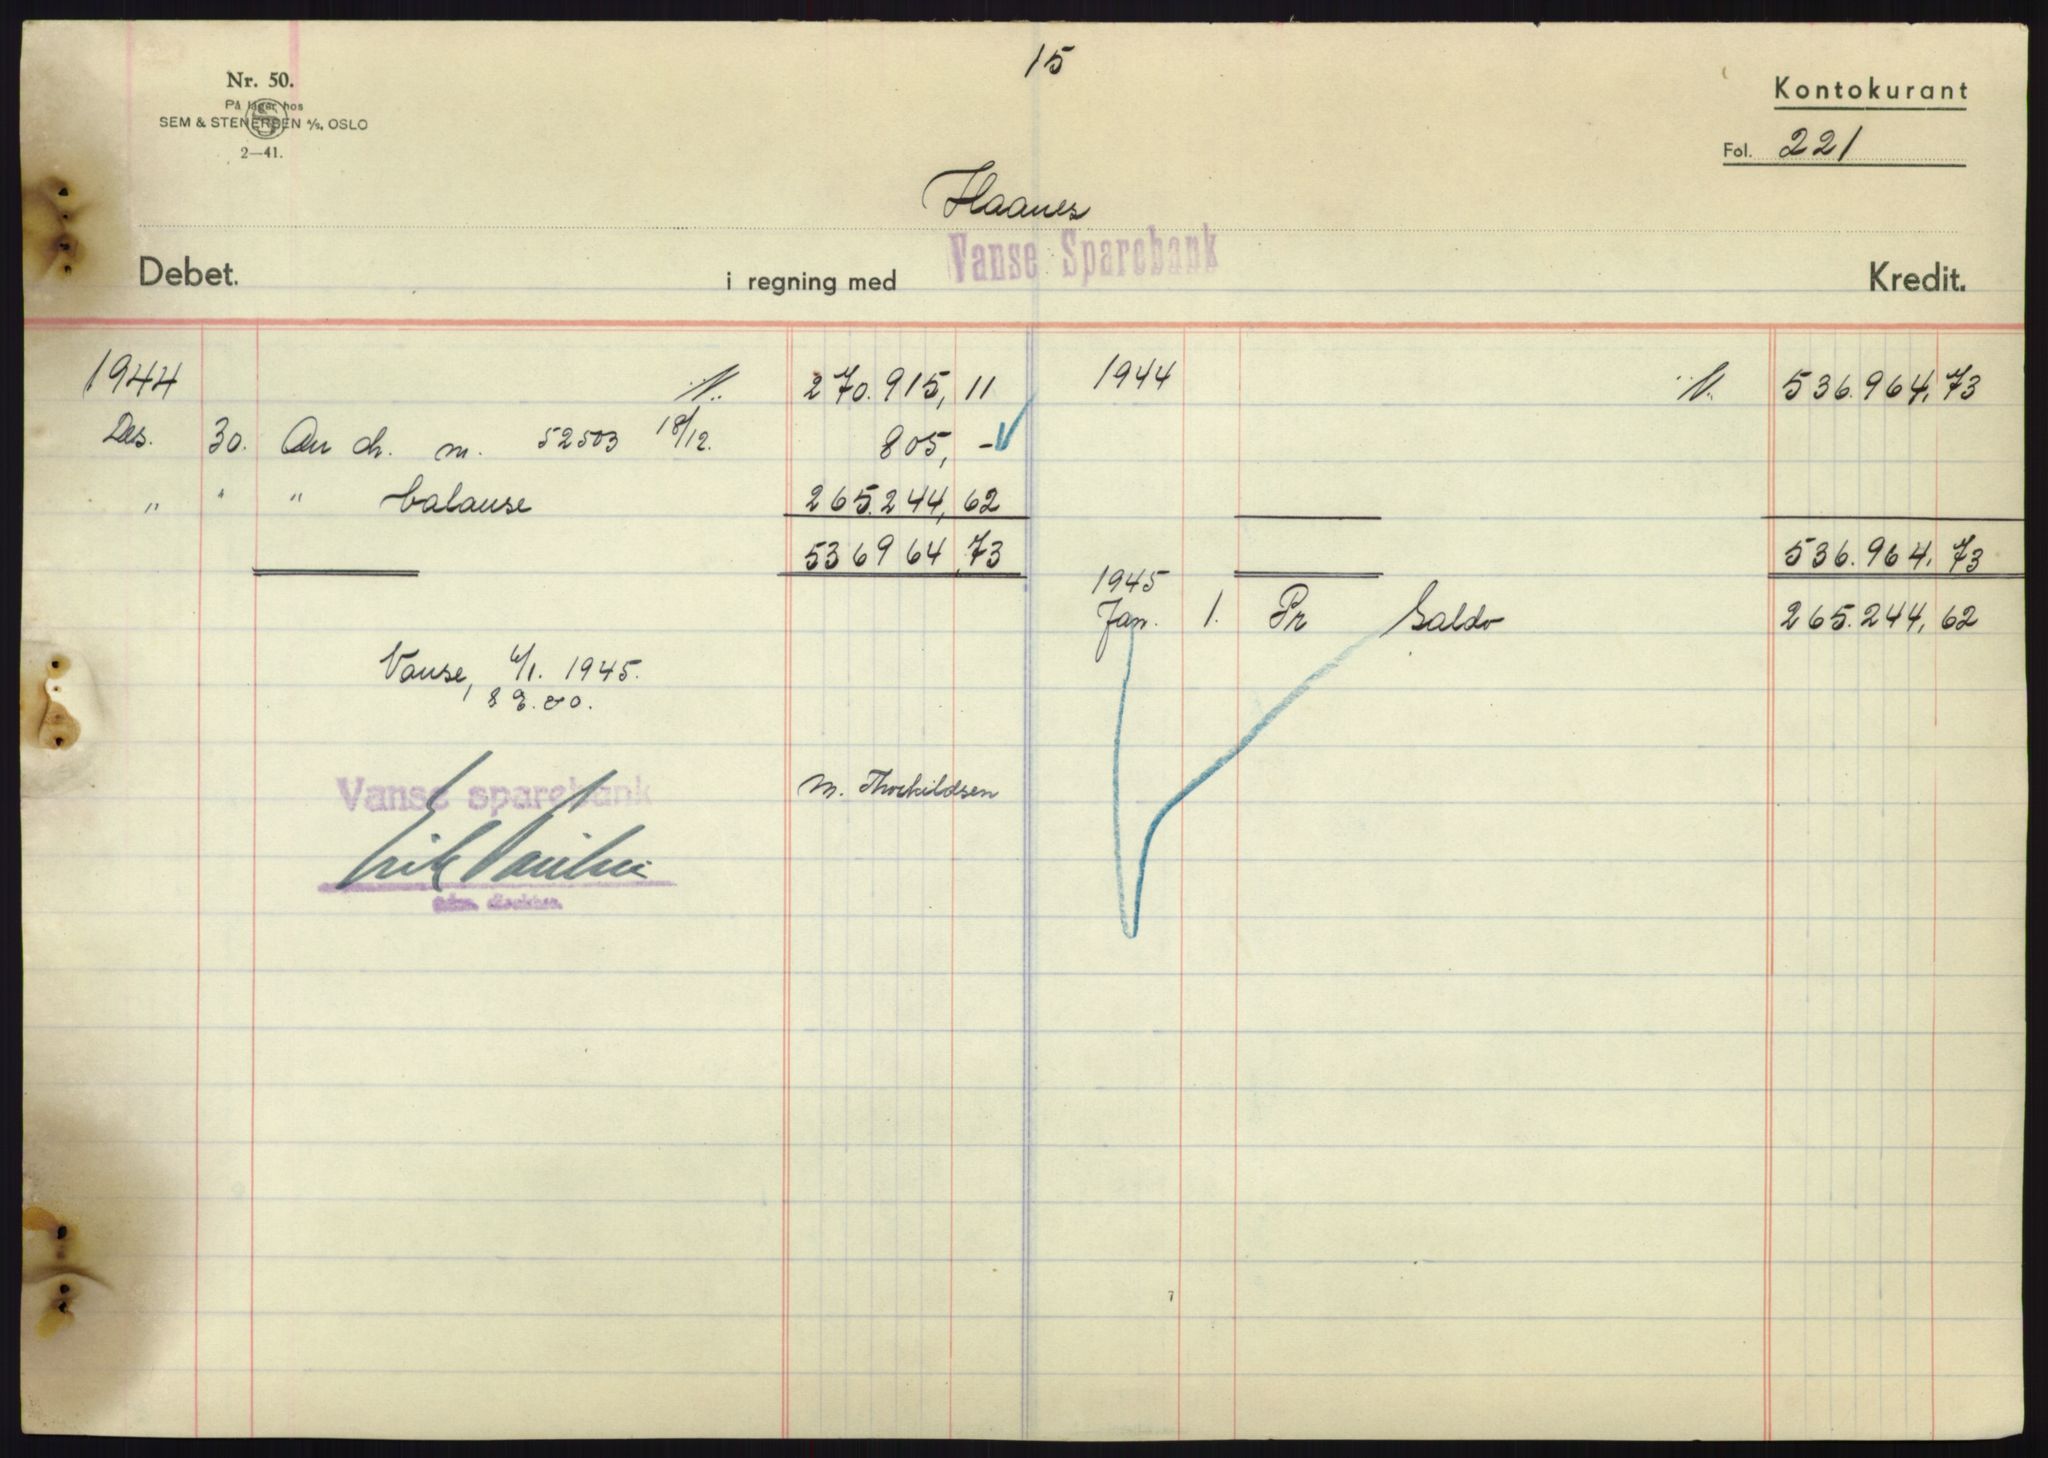 15
Nr. 50.
På lager hos
SEM & STENERSEN A/S, OSLO
2—41.
Kontokurant
Fol. 221
Haanes
Debet. i regning med Vanse Sparebank Kredit.
1944 270.915, 11 1944 536.964, 73
Des. 30. An ch. m. 52503 18/12. 805, -
" " " balanse 265.244, 62
536964, 73 536.964, 73
1945
Jan. 1. Pr Saldo 265.244, 62
Vanse, 6/1. 1945.
Vanse sparebank M. Thorkildsen
Erik
adm. direktør.